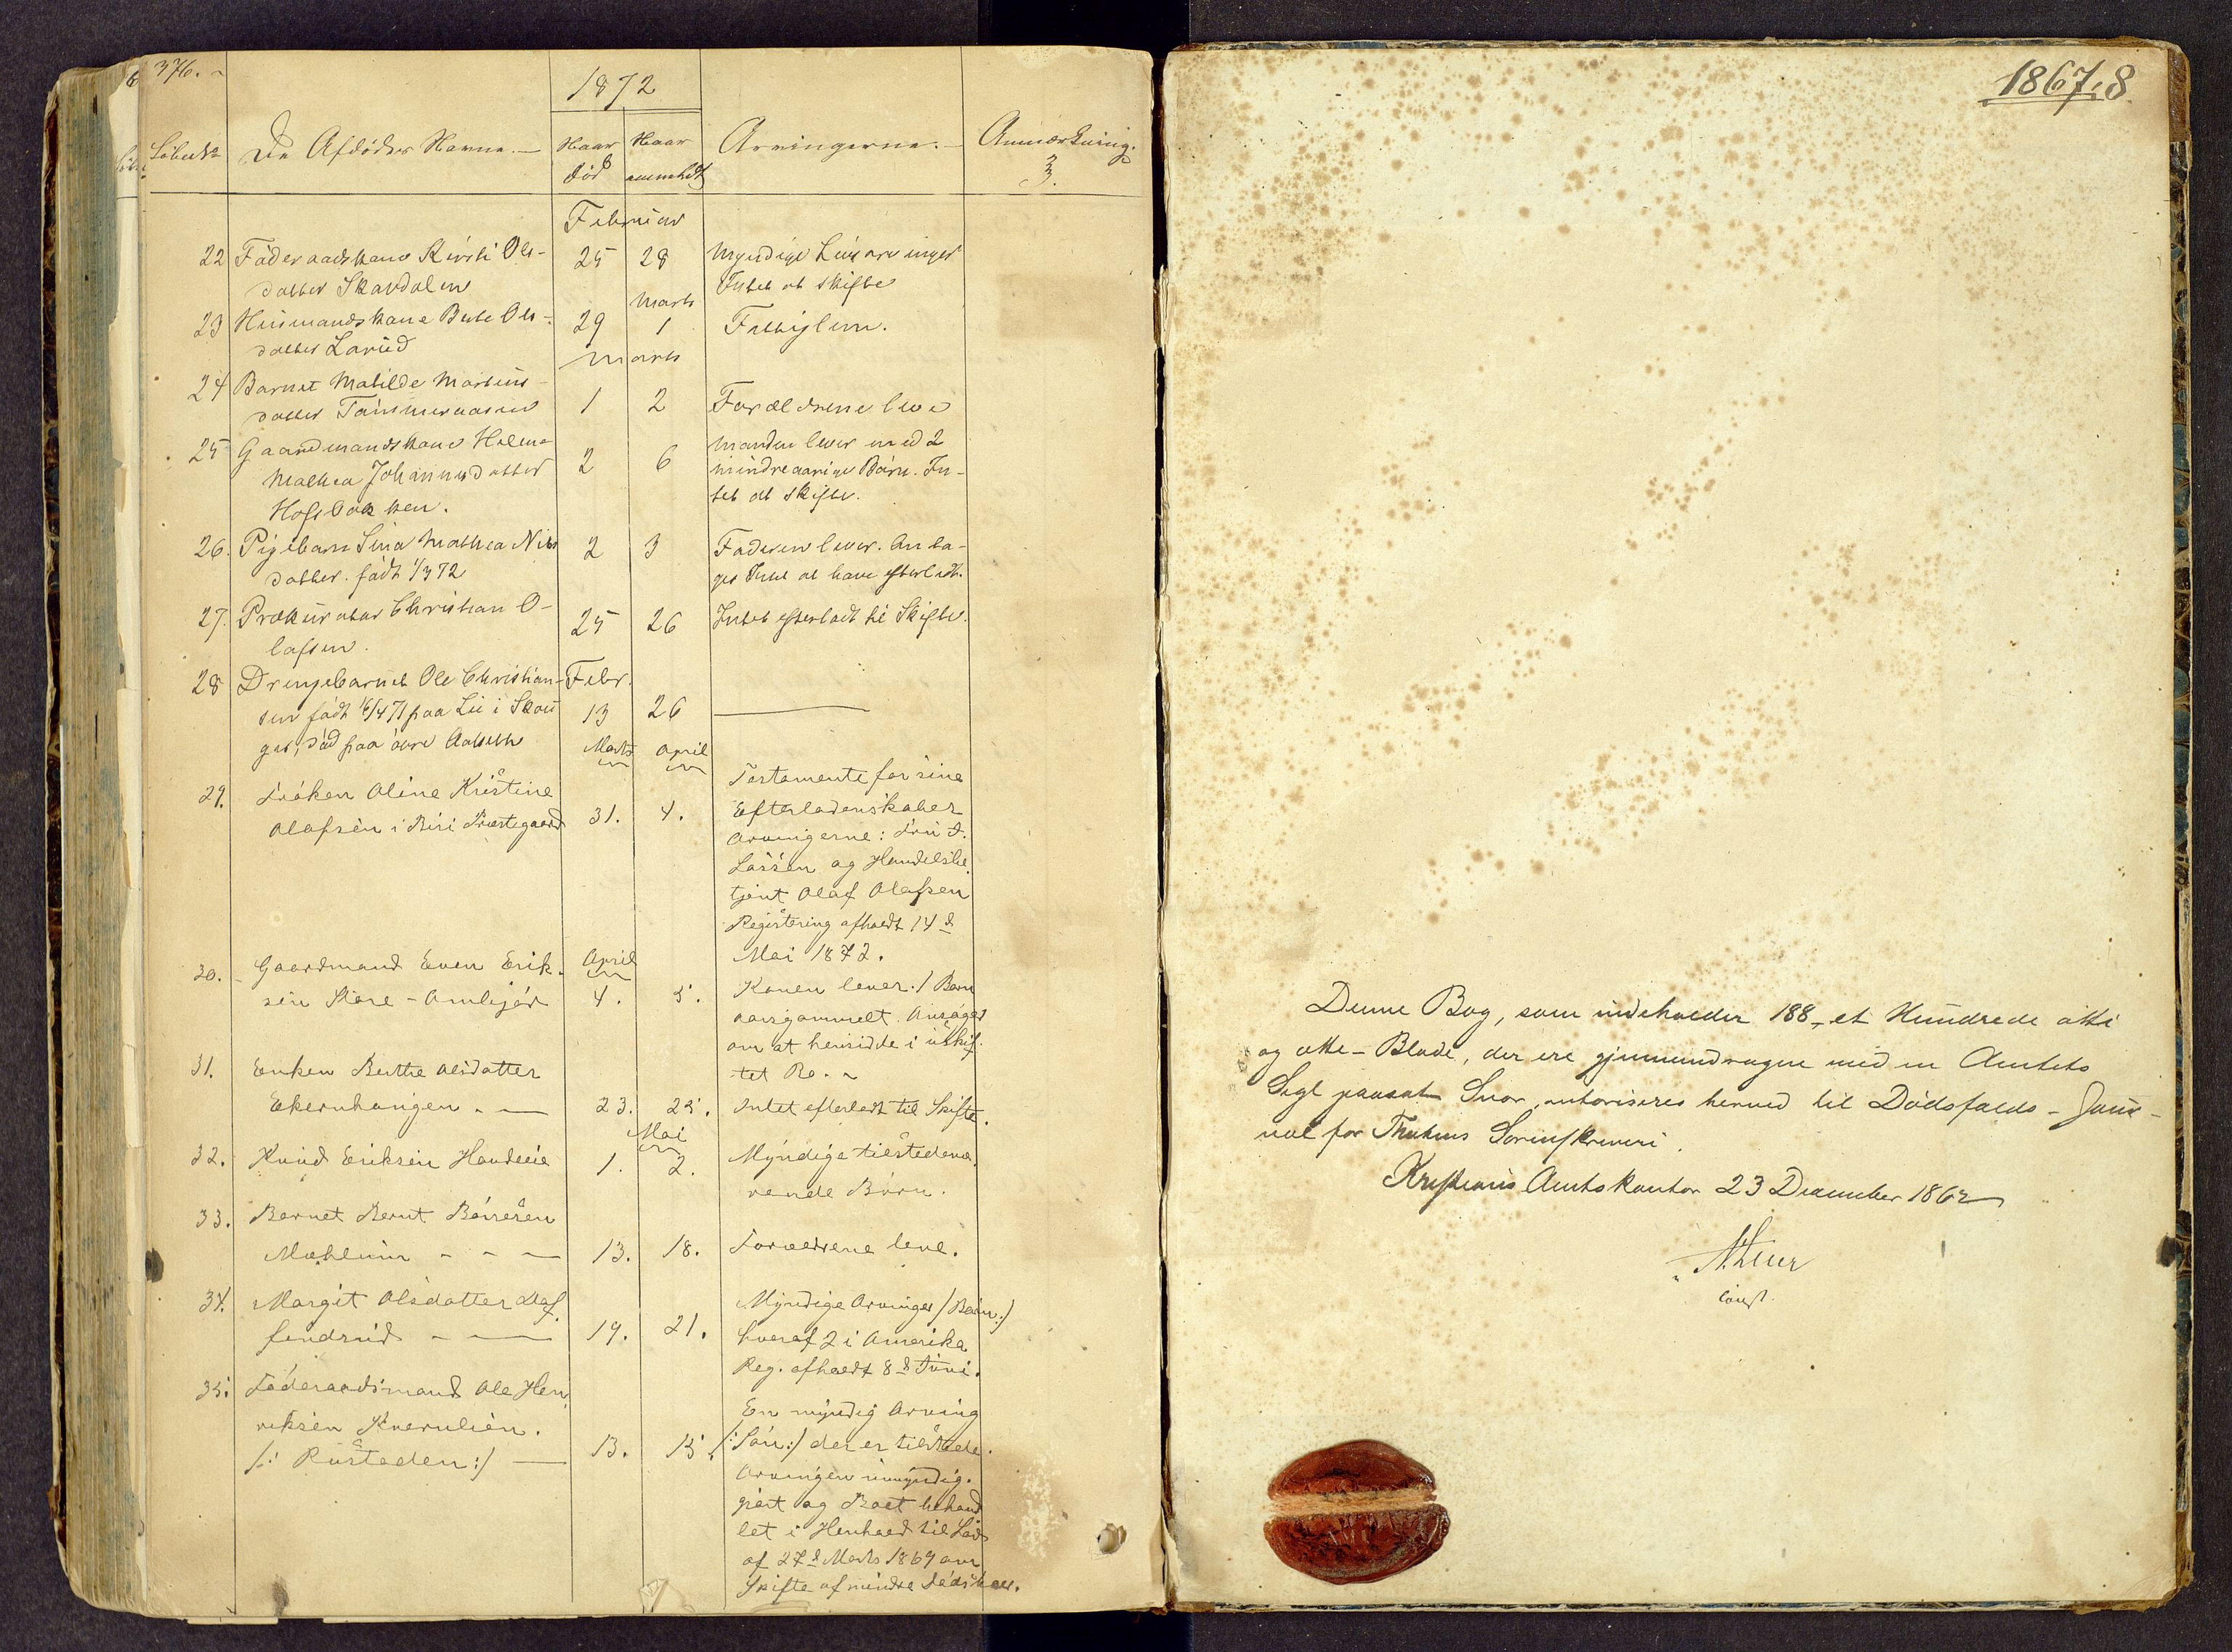 376.
1872
Löbenr
De Afdödes Navne.
Naar död
Naar anmeldt
Arvingerne.
Anmærkning.
Februar
22 Föderaadskone Kirsti Ols-
datter Skardalen
25 28
Myndige Livsarvinger
Intet at skifte
23 Huusmandskone Berte Ols-
datter Larud
29
Marts
1
Fattiglem.
Marts
24 Barnet Matilde Martins-
datter Tömmeraasen
1 2
Forældrene leve
25 Gaardmandskone Helene
Mathea Johannesdatter
Hofsbakken.
2 6
Manden lever med 2
mindreaarige Börn. In-
tet at skifte.
26. Pigebarn Sina Mathea Nils
datter. födt 1/3 72
2 3
Faderen lever. Anta-
ges Intet at have efterladt.
27. Prokurator Christian O-
lafsen.
25 26
Intet efterladt til Skifte.
28 Drengebarnet Ole Christian-
sen födt 16/4 71 paa Lie i
död paa övre
Febr.
13 26
Marts April
29. Fröken Oline Kristine
Olafsen i Biri Præstegaard
31. 4.
Testamente for sine
Efterladenskaber
Arvingerne: Fru J.
Lassen og Handelsbe-
tjent Olaf Olafsen
Registering afholdt 14d
Mai 1872.
30. Gaardmand Even Erik-
sen Store-Amlejör
April
4. 5.
Konen lever. 1 Barn
aarsgammelt. Ansöges
om at hensidde i uskif-
tet Bo.
31. Enken Berthe Olsdatter
Ekernhaugen
23. 25.
Intet efterladt til Skifte.
Mai
32. Knud Eriksen Haudeeie
1. 2.
Myndige tilstedevæ-
rende Börn.
33. Barnet Bernt Börresen
Mæhlum
13. 18.
Forældrene leve.
34. Margit Olsdatter Daf-
findrud
19. 21.
Myndige Arvinger /Börn:/
hvoraf 2 i Amerika
Reg. afholdt 8d Juni.
35. Föderaadsmand Ole Hen-
riksen Kvernlien.
/: Rustaden:/
13. 15.
En myndig Arving
/:Sön:/ der er tilstede.
Arvingen umyndig-
gjort og Boet behand
let i Henhold til Lov
af 27d Marts 1869 om
Skifte af mindre Dödsboer.
1867,8
Denne Bog, som indeholder 188, et Hundrede otti
og otte-Blade, der ere gjennemdragne med en Amtets
Segl paasat Snor, autoriseres herved til Dödsfalds-Jour-
nal for Thotens Sorenskriveri.
Kristians Amtskontor 23 December 1862
const.